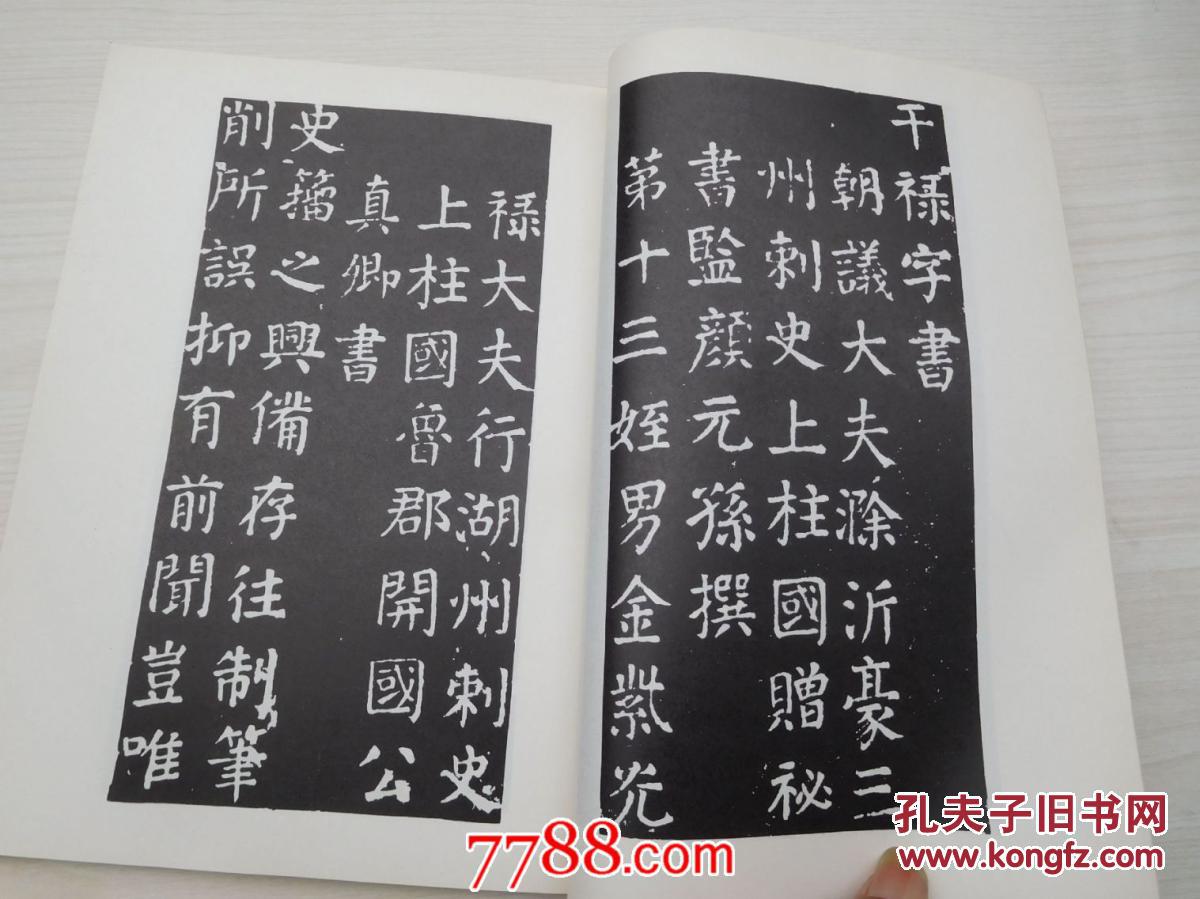 干禄字書
朝議大夫滁沂豪三
州刺史上柱國贈祕
書監顔元孫撰
第十三姪男金紫光
禄大夫行湖州刺史
上柱國魯郡開國公
真卿書
史籀之興備存往制筆
削所誤抑有前聞豈唯
7788.com
孔夫子旧书网
www.kongfz.com